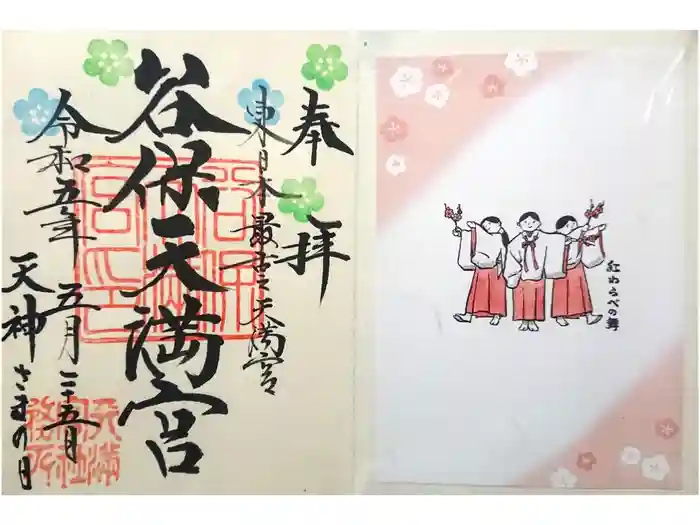 奉拝
東日本最古天満宮
谷保天満宮
令和五年 五月二十五日
天神さまの日
紅わらべの舞